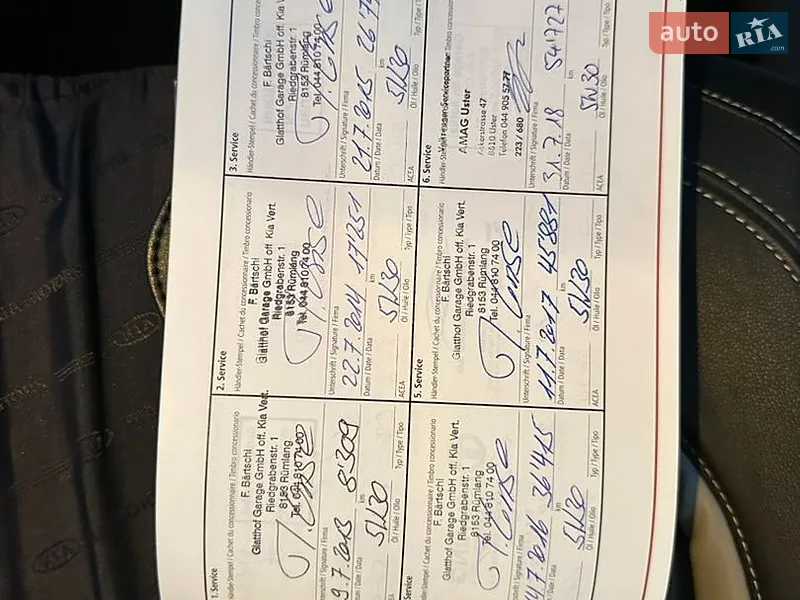 auto RIA.com
1. Service
Händler-Stempel / Cachet du concessionnaire / Timbro concessionario
F. Bärtschi
Glatthof Garage GmbH off. Kia Vert.
Riedgrabenstr. 1
8153 Rümlang
Tel. 044 810 74 00
Unterschrift / Signature / Firma
9.7.2013 8'309
Datum / Date / Data km
5W30
ACEA Öl / Huile / Olio Typ / Type / Tipo
2. Service
Händler-Stempel / Cachet du concessionnaire / Timbro concessionario
F. Bärtschi
Glatthof Garage GmbH off. Kia Vert.
Riedgrabenstr. 1
8153 Rümlang
Tel. 044 810 74 00
Unterschrift / Signature / Firma
22.7.2014 17'251
Datum / Date / Data km
5W30
ACEA Öl / Huile / Olio Typ / Type / Tipo
3. Service
Händler-Stempel / Cachet du concessionnaire / Timbro
F. Bärtschi
Glatthof Garage GmbH off. Kia
Riedgrabenstr. 1
8153 Rümlang
Tel. 044 810 74 00
Unterschrift / Signature / Firma
21.7.2015
Datum / Date / Data km
5W30
ACEA Öl / Huile / Olio Typ / Type
Service
Händler-Stempel / Cachet du concessionnaire / Timbro concessionario
F. Bärtschi
Glatthof Garage GmbH off. Kia Vert.
Riedgrabenstr. 1
8153 Rümlang
Tel. 044 810 74 00
Unterschrift / Signature / Firma
7.2016 36'415
Datum / Date / Data km
5W30
ACEA Öl / Huile / Olio Typ / Type / Tipo
5. Service
Händler-Stempel / Cachet du concessionnaire / Timbro concessionario
F. Bärtschi
Glatthof Garage GmbH off. Kia Vert.
Riedgrabenstr. 1
8153 Rümlang
Tel. 044 810 74 00
Unterschrift / Signature / Firma
11.7.2017 45'881
Datum / Date / Data km
5W30
ACEA Öl / Huile / Olio Typ / Type / Tipo
6. Service
AMAG Uster
Ackerstrasse 47
8610 Uster
Telefon 044 905
223 / 680
Unterschrift / Signature / Firma
31.7.18 54'727
Datum / Date / Data km
5W30
ACEA Öl / Huile / Olio Typ / Type / Tipo
KIA